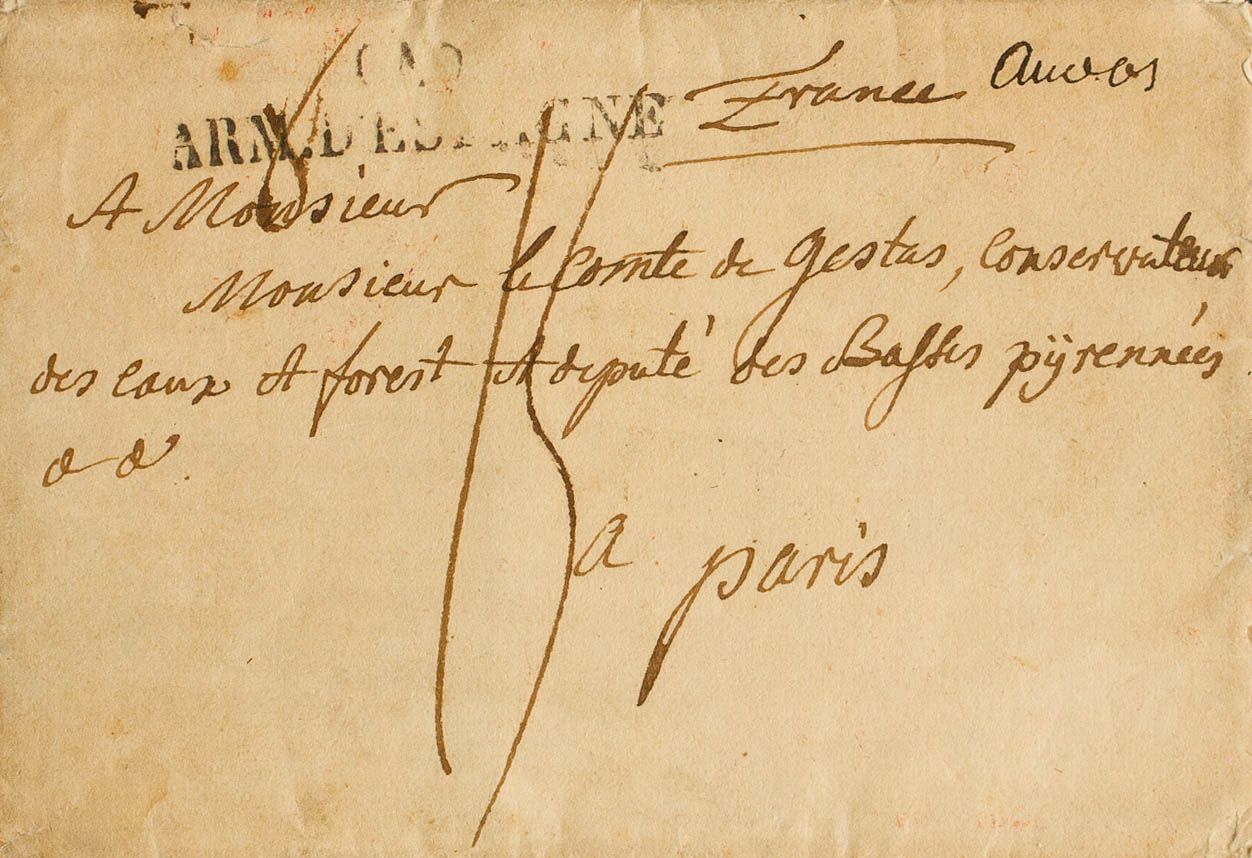 ARM. D'ESPAGNE
France
A Monsieur
Monsieur le Comte de Gestas, Conservateur
des eaux et forest et député des Basses pÿrennées
& &.
a paris